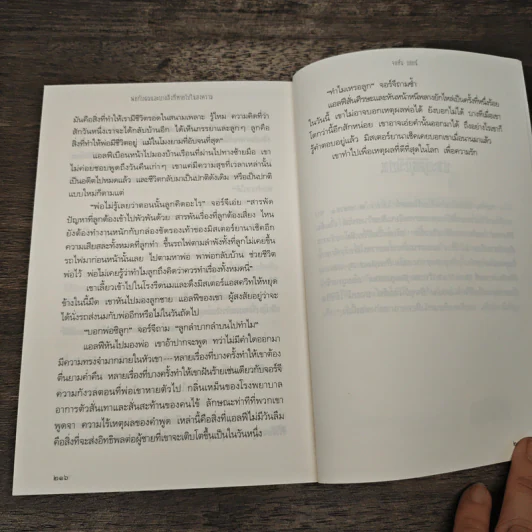 มันคือสิ่งที่ทำให้เขามีชีวิตรอดในสนามเพลาะ รู้ไหม ความคิดที่ว่า
สักวันหนึ่งเขาจะได้กลับบ้านอีก ได้เห็นภรรยาและลูกๆ ลูกคือ
สิ่งที่ทำให้พ่อมีชีวิตอยู่ แม้ในโมงยามที่อับจนที่สุด"
แอลฟีเบือนหน้าไปมองบ้านเรือนที่ผ่านไปทางซ้ายมือ เขา
ไม่ค่อยชอบพูดถึงวันคืนเก่าๆ เขาแค่มีความสุขที่เวลาเหล่านั้น
เป็นอดีตไปหมดแล้ว และชีวิตกลับมาเป็นปกติดังเดิม หรือเป็นปกติ
แบบใหม่ก็ตามแต่
"พ่อไม่รู้เลยว่าตอนนั้นลูกคิดอะไร" จอร์จีเอ่ย "สารพัด
ปัญหาที่ลูกต้องเข้าไปพัวพันด้วย สารพันเรื่องที่ลูกต้องเสี่ยง ไหน
ยังต้องทำงานหนักกับกล่องขัดรองเท้าของมิสเตอร์ยานาเช็คอีก
ความเสียสละทั้งหมดที่ลูกทำ ขึ้นรถไฟมาลำพังทั้งที่ลูกไม่เคยขึ้น
รถไฟมาก่อนหน้านั้นเลย ไปตามหาพ่อ พาพ่อกลับบ้าน ช่วยชีวิต
พ่อไว้ พ่อไม่เคยรู้ว่าทำไมลูกถึงคิดว่าควรทำเรื่องทั้งหมดนี่"
เขาเลี้ยวเข้าไปในโรงรีดนมและดึงมิสเตอร์แอสควิทให้หยุด
ข้างในนี้มืด เขาหันไปมองลูกชาย แอลฟีของเขา ผู้สงสัยอยู่ว่าจะ
ได้นั่งรถส่งนมกับพ่ออีกหรือไม่ในวันถัดไป
"บอกพ่อซิลูก" จอร์จีถาม "ลูกลำบากลำบนไปทำไม"
แอลฟีหันไปมองพ่อ เขาอ้าปากจะพูด ทว่าไม่มีคำใดออกมา
มีความทรงจำมากมายในหัวเขา—หลายเรื่องที่บางครั้งทำให้เขาต้อง
ตื่นยามค่ำคืน หลายเรื่องที่บางครั้งทำให้เขาฝันร้ายเช่นเดียวกับจอร์จี
ความกังวลตอนที่พ่อเขาหายตัวไป กลิ่นเหม็นของโรงพยาบาล
อาการตัวสั่นเทาและสั่นสะท้านของคนไข้ ลักษณะท่าทีที่พวกเขา
พูดจา ความไร้เหตุผลของคำพูด เหล่านี้คือสิ่งที่แอลฟีไม่มีวันลืม
คือสิ่งที่จะส่งอิทธิพลต่อผู้ชายที่เขาจะเติบโตขึ้นเป็นในวันหนึ่ง
๒๑๖
จอห์น บอยน์
"ทำไมเหรอลูก" จอร์จีถามซ้ำ
ในวันนี้ เขาไม่อาจบอกเหตุผลพ่อได้ ยังบอกไม่ได้ บางทีเมื่อเขา
โตกว่านี้อีกสักหน่อย เขาอาจเอ่ยคำนั้นออกมาได้
เขาทำไปเพื่อเหตุผลที่ดีที่สุดในโลก เพื่อความรัก